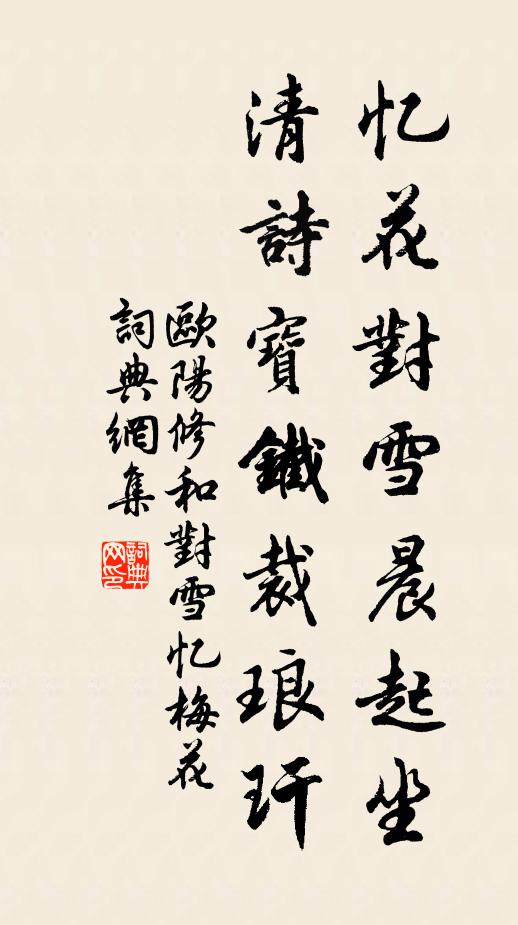 忆花對雪晨起坐
清詩寶鐵裁琅玕
歐陽修和對雪忆梅花
詞典網集
詞典
网印